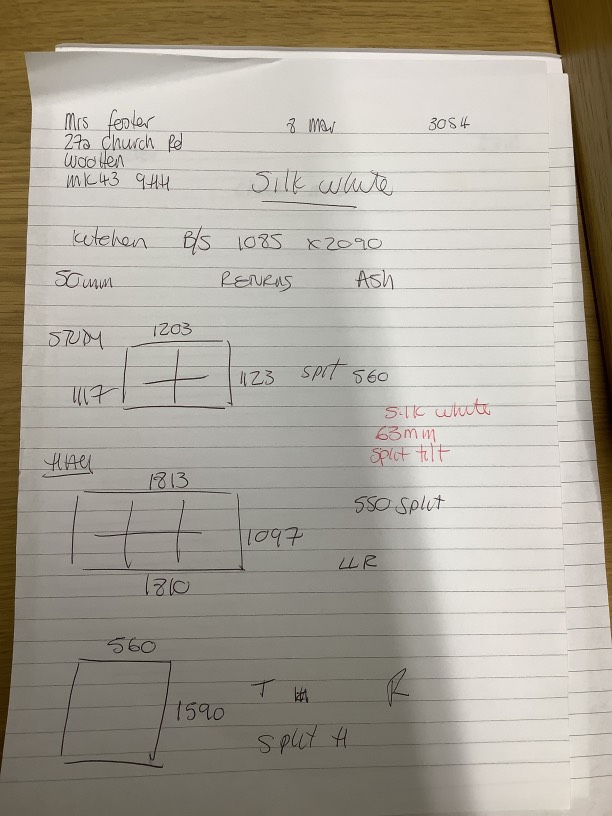 Mrs foster 8 Mar 3054
27a Church Rd
Wootten
MK43 9HH Silk white
Kitchen B/S 1085 x 2090
50mm RENRNS Ash
STUDY 1203
1117 1123 sprt 560
Silk white
63mm
Split tilt
HALL 1813
550 split
1097
LLR
1810
560
T R
1590
Split H